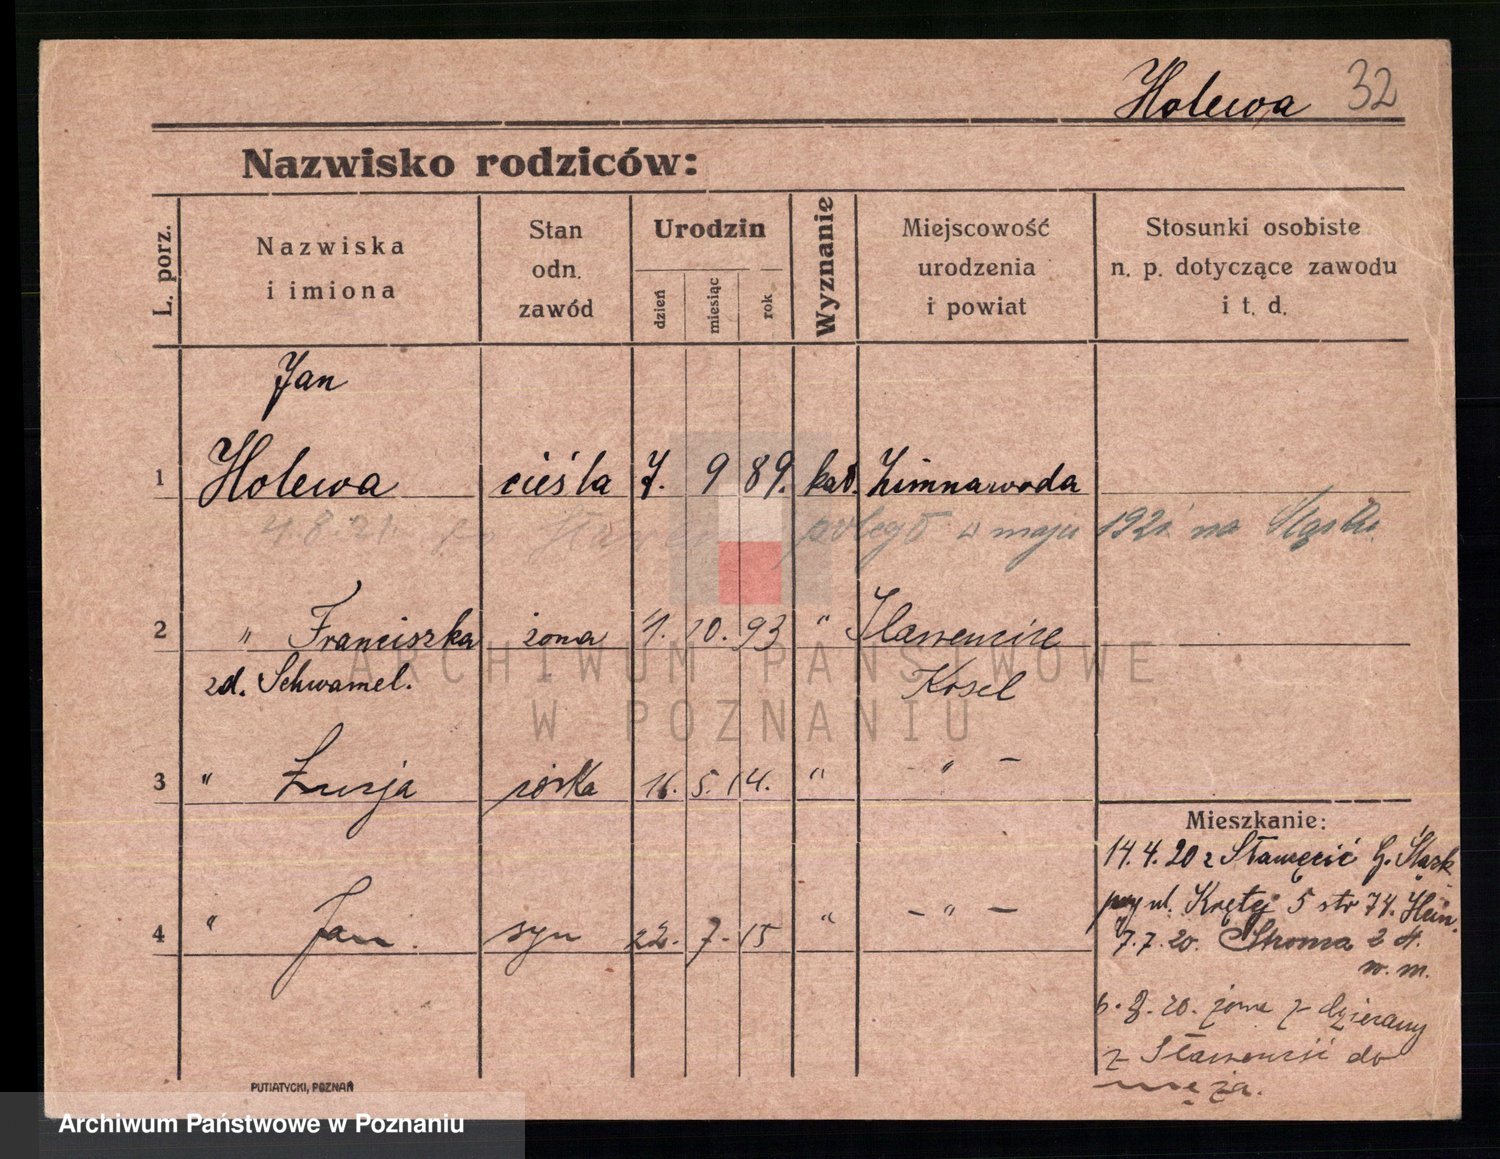 Holewa 32
Nazwisko rodziców:
L. porz.
Nazwiska
i imiona
Stan
odn.
zawód
Urodzin
dzień
miesiąc
rok
Wyznanie
Miejscowość
urodzenia
i powiat
Stosunki osobiste
n. p. dotyczące zawodu
i t. d.
Jan
1 Holewa cieśla 7. 9 89. kat. Zimnawoda
4.8.21. poległ w maju 1921 na Śląsku
2 " Franciszka żona 4. 10. 93 " Slawencice
zd. Schwamel. Kosel
3 " Łucja córka 16. 5. 14. " - " -
Mieszkanie:
14.4.20 z Sławęcić G. Śląsk
przy ul. Krętej 5 str 74. Hein.
4 " Jan. syn 22. 7. 15 " - " -
7.7.20. Stroma 24.
w. m.
6.8.20. żona z dziećmi
z Sławencić do
męża.
PUTIATYCKI, POZNAŃ
ARCHIWUM PAŃSTWOWE
W POZNANIU
Archiwum Państwowe w Poznaniu